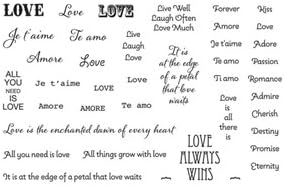 LOVE
Love
LOVE
Live Well
Laugh Often
Love Much
Forever
Kiss
Je t'aime
Te amo
Live
Laugh
Love
Amore
Love
It is
at the edge
of a petal
that love
waits
Je t'aime
Adore
Amore
Love
Te amo
Passion
ALL
YOU
NEED
IS
LOVE
Je t'aime
LOVE
Love
Ti amo
Romance
Amore
AMORE
Amore
Te amo
Love
is
all
there
is
Admire
Cherish
Love is the enchanted dawn of every heart
Destiny
All you need is love
All things grow with love
LOVE
ALWAYS
WINS
Promise
Eternity
It is at the edge of a petal that love waits